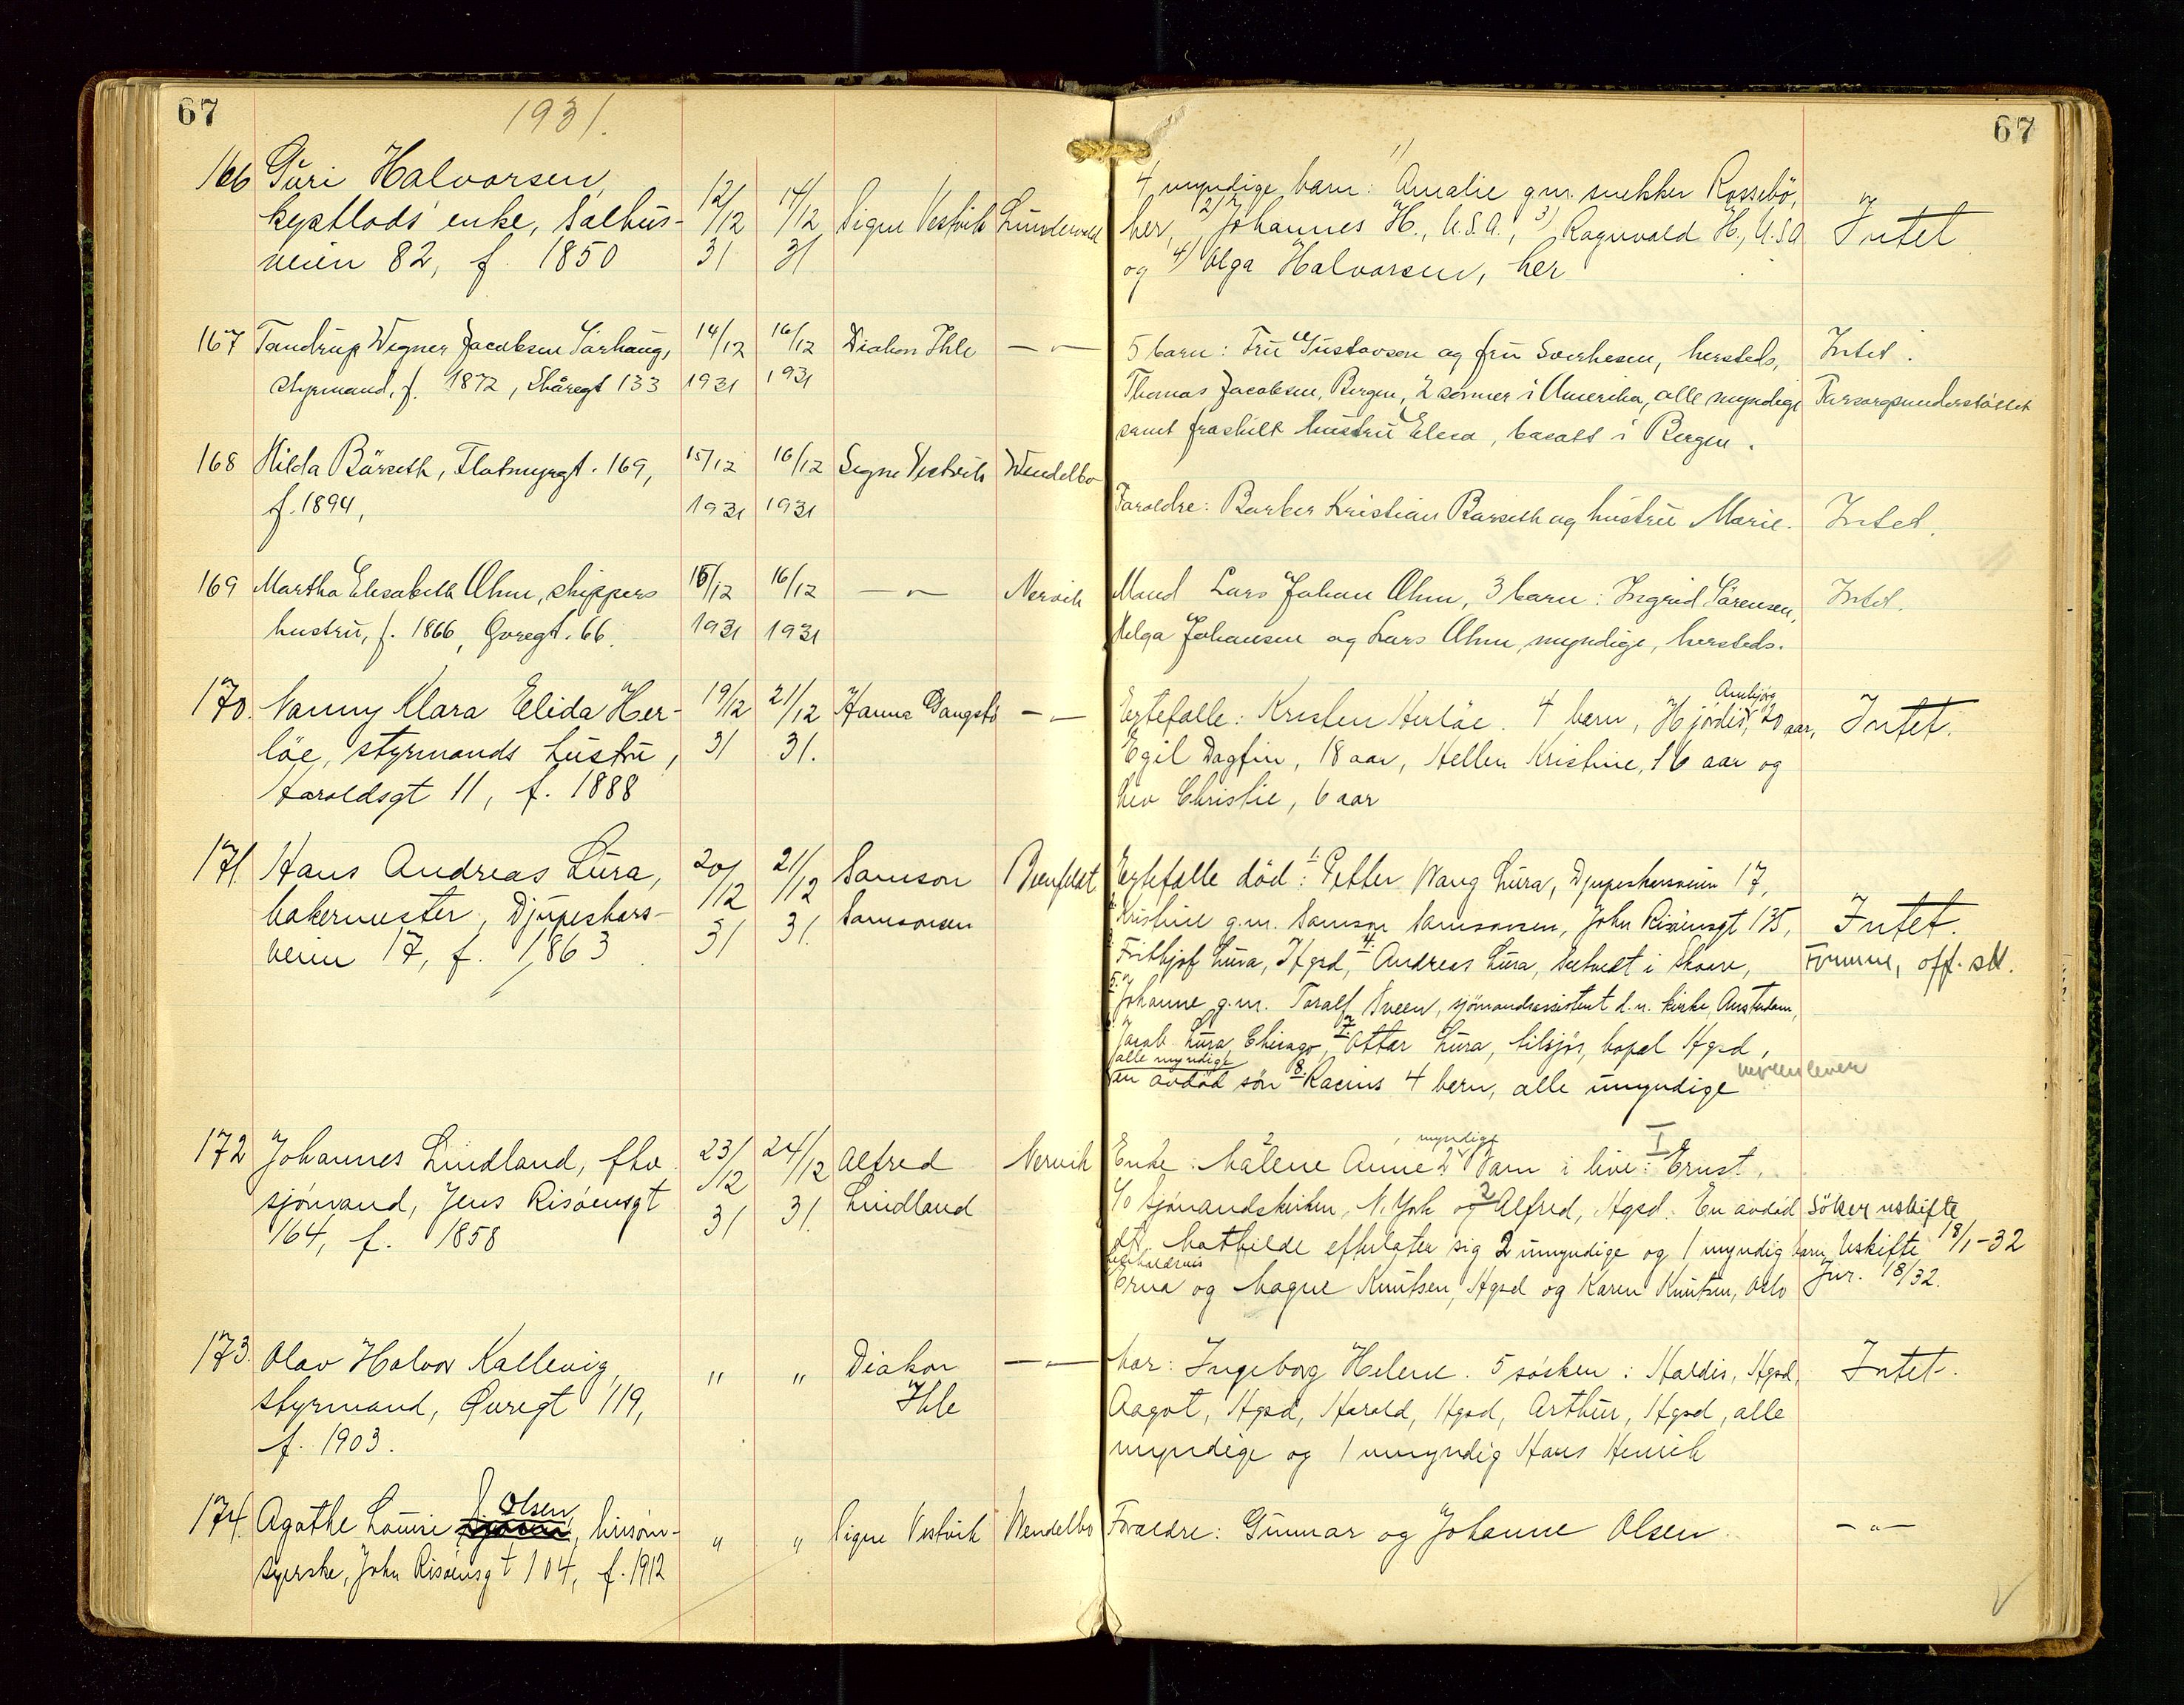 67
1931.
67
166 Guri Halvorsen,
kystlods enke, Salhus-
veien 82, f. 1850
12/12 31
14/12 31
Signe Vestvik
4 myndige barn: 1) Amalie g.m. snekker Rossebö,
her, 2) Johannes H., U.S.A., 3) Ragnvald H., U.S.A
og 4) Olga Halvorsen, her
Intet
167 Tandrup Wegner Jacobsen Sörhaug,
styrmand, f. 1872, Skåregt 133
14/12 1931
16/12 1931
Diakon Ihle
— " —
5 barn: Fru Gustavson og fru Sverhesen, hersteds,
Thomas Jacobsen, Bergen, 2 sönner i Amerika, alle myndige
samt fraskilt hustru Elesa, bosatt i Bergen.
Intet.
Forsorgsunderstöttet
168 Hilda Bårseth, Flotmyrgt. 169,
f. 1894,
15/12 1931
16/12 1931
Signe Vestvik
Wendelbo
Foreldre: Barber Kristian Barseth og hustru Marie.
Intet.
169 Martha Elisabeth Ohm, skippers
hustru, f. 1866, Qvregt. 66.
15/12 1931
16/12 1931
— " —
Nervik
Mand Lars Johan Ohm, 3 barn: Ingrid Sörensen,
Helga Johansen og Lars Ohm, myndige, hersteds.
Intet.
170. Nanny Klara Elida Her-
löe, styrmands hustru,
Haraldsgt 11, f. 1888
19/12 31
21/12 31.
Hanna Gangstö
— " —
Ektefelle: Kristen Herlöe. 4 barn, Hjördis Ambjörg, 20 aar,
Egil Dagfin, 18 aar, Hellen Kristine, 16 aar og
Liv Christie, 6 aar
Intet.
171 Hans Andreas Lura,
bakermester, Djupeskars-
veien 17, f. 1863
20/12 31
21/12 31.
Samson
Samsonsen
Ektefelle död: 1. Petter Wang Lura, Djupeskarsveien 17,
Kristine g.m. Samson Samsonsen, John Risöensgt 135,
Frithjof Lura, Hgsd, 4. Andreas Lura, Sætvedt i Skaare,
5. Johanne g.m. Toralf Sveen, sjömandsassistent d.n. kirke, Amsterdam,
Jacob Lura Chicago, 7. Ottar Lura, tilsjös, bopel Hgsd,
alle myndige
en avdöd sön 8. Racius 4 barn, alle umyndige
Intet.
Formue, off. sk.
172 Johannes Lindland, fhv.
sjömand, Jens Risöensgt
164, f. 1858
23/12 31
24/12 31.
Alfred
Lindland
Nervik
Enke Malene Anne 2 myndige barn i live: I Ernst,
c/o Sjömandskirken, N.York og 2 Alfred, Hgsd. En avdöd
dt. Mathilde efterlater sig 2 umyndige og 1 myndig barn,
Erna og Magne Knutsen, Hgsd og Karen Knutsen, Oslo
Söker uskifte
Uskifte 18/1-32
Jnr. 18/32.
173. Olav Halvor Kallevig,
styrmand, Qvregt 119,
f. 1903.
"
"
Diakon
Ihle
— " —
Mor: Ingeborg Helene. 5 söcken: Haldis, Hgsd,
Aagot, Hgsd, Harald, Hgsd, Arthur, Hgsd, alle
myndige og 1 umyndig Hans Henrik
Intet.
174. Agathe Louise Olsen, linsöm-
syerske, John Risöensgt 104, f. 1912
"
"
Signe Vestvik
Wendelbo
Foreldre: Gunnar og Johanne Olsen.
— " —